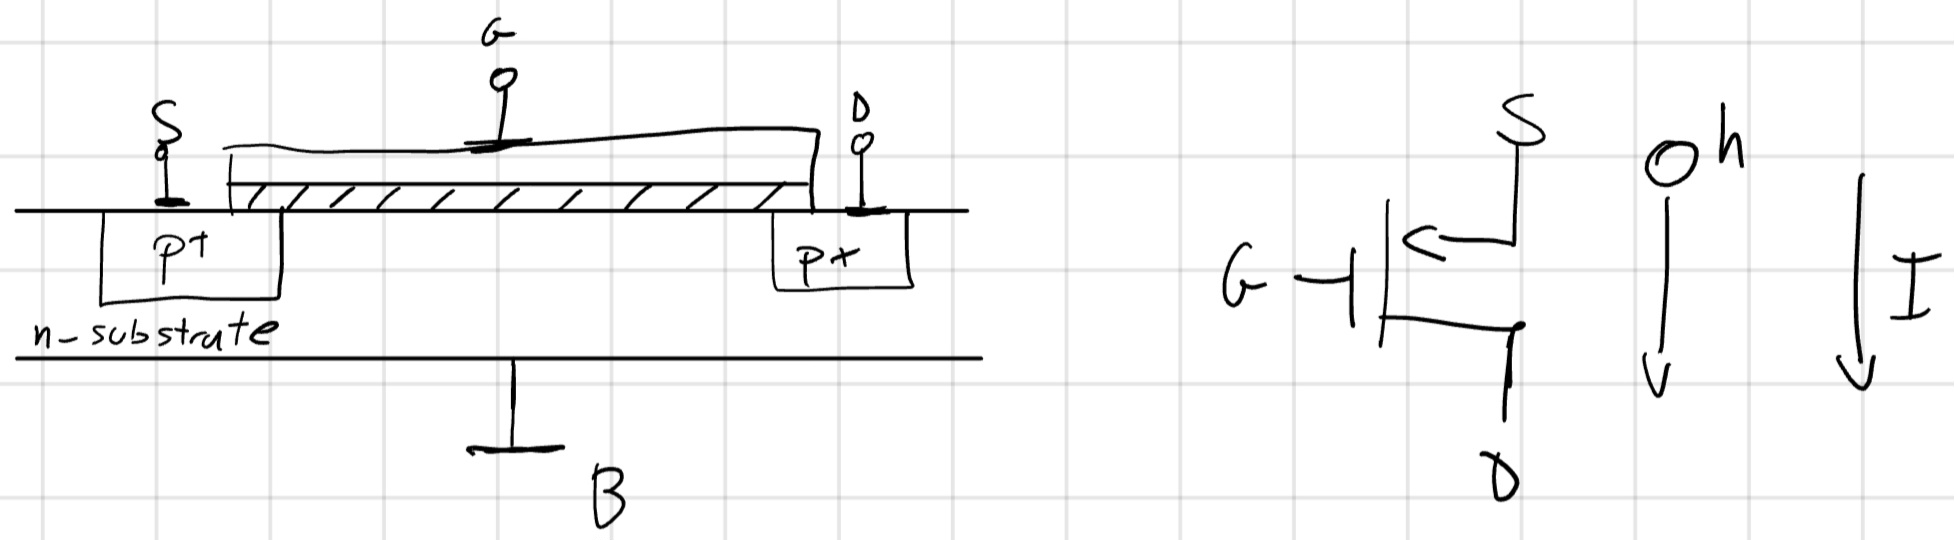 G
S
D
p+
p+
n-substrate
B
S
h
G
I
D